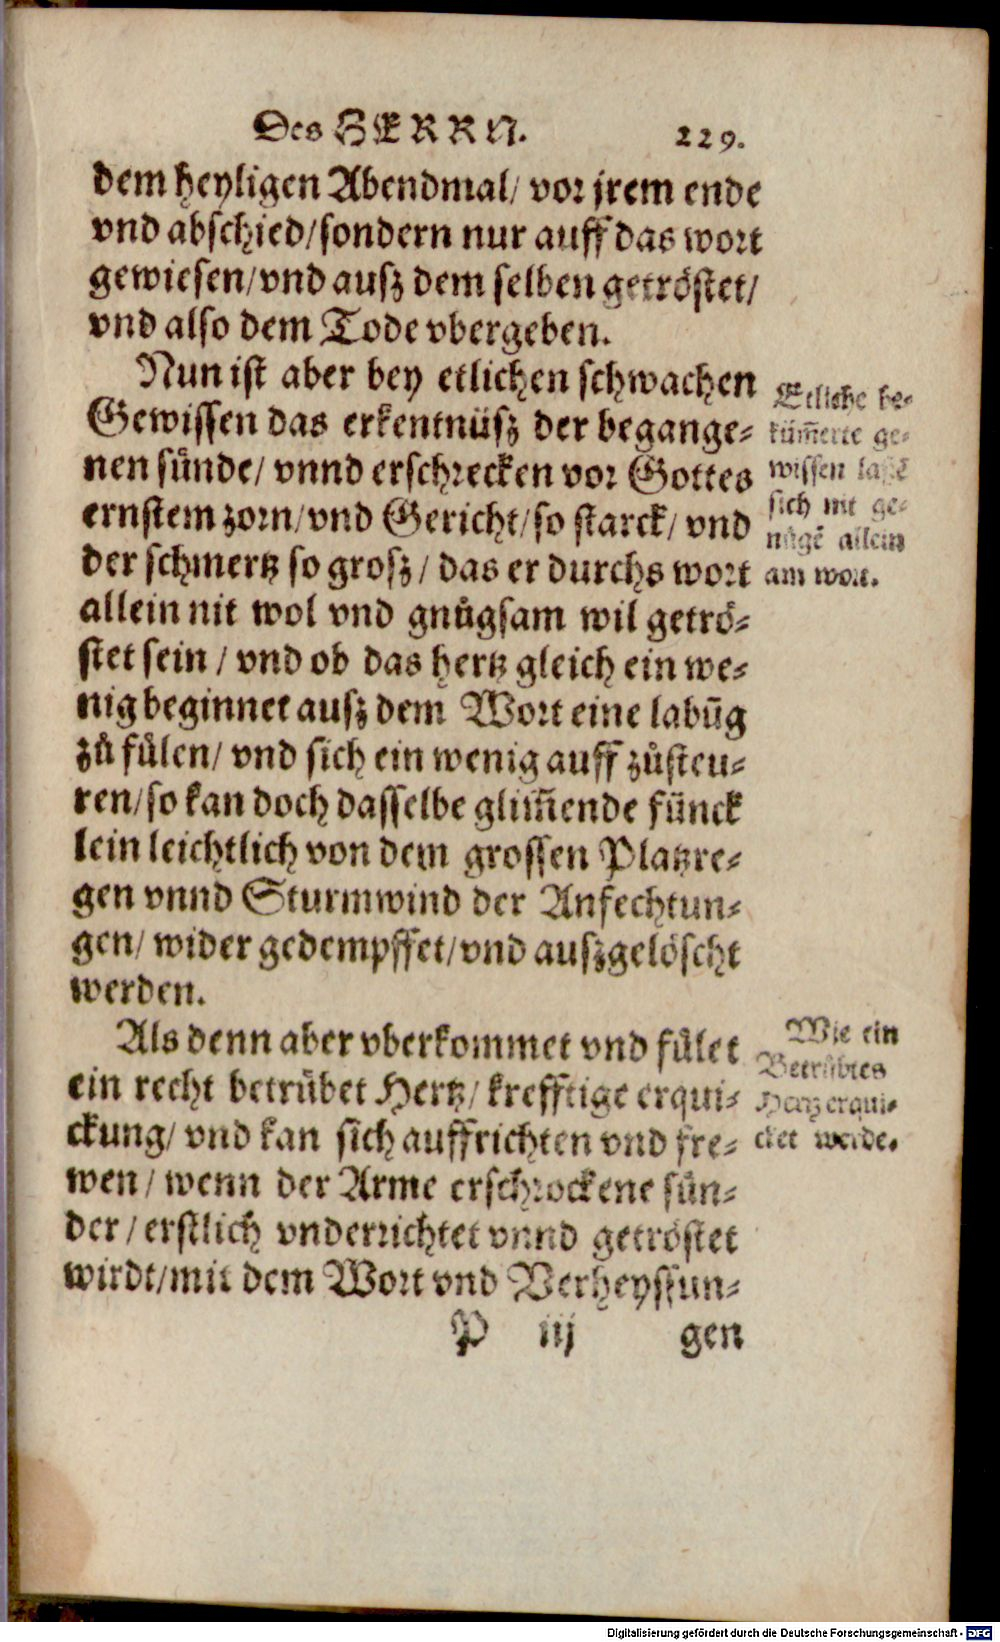 Des HERRN. 229.
dem heyligen Abendmal/ vor jrem ende
vnd abschied/sondern nur auff das wort
gewiesen/vnd ausz dem selben getröstet/
vnd also dem Tode vbergeben.
Nun ist aber bey etlichen schwachen
Gewissen das erkentnüsz der begange-
nen sünde/ vnnd erschrecken vor Gottes
ernstem zorn/vnd Gericht/so starck/ vnd
der schmertz so grosz/ das er durchs wort
allein nit wol vnd gnůgsam wil getrö-
stet sein / vnd ob das hertz gleich ein we-
nig beginnet ausz dem Wort eine labūg
zů fülen/ vnd sich ein wenig auff zůsteu-
ren/so kan doch dasselbe glim̄ende fünck
lein leichtlich von dem grossen Platzre-
gen vnnd Sturmwind der Anfechtun-
gen/ wider gedempffet/vnd auszgelöscht
werden.
Etliche be-
küm̄erte ge-
wissen lassē
sich nit ge-
nůgē allein
am wort.
Als denn aber vberkommet vnd fület
ein recht betrübet Hertz/ krefftige erqui-
ckung/ vnd kan sich auffrichten vnd fre-
wen / wenn der Arme erschrockene sün-
der / erstlich vnderrichtet vnnd getröstet
wirdt/mit dem Wort vnd Verheyssun-
Wie ein
Betrübtes
Hertz erqui-
cket werde.
P iij gen
Digitalisierung gefördert durch die Deutsche Forschungsgemeinschaft - DFG